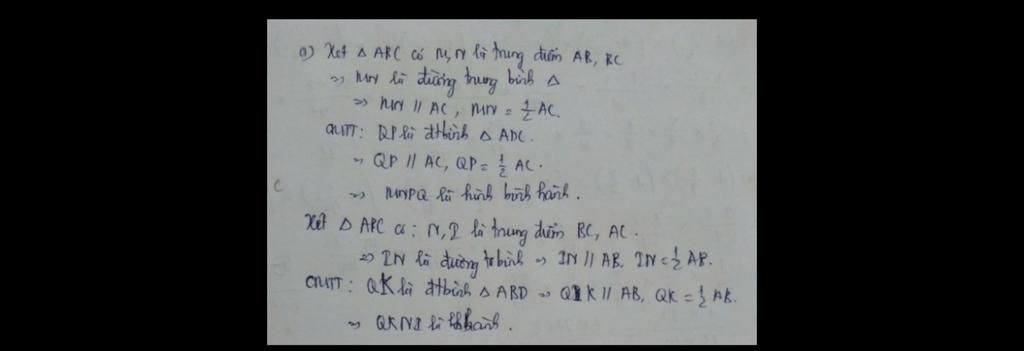 a) Xét △ ABC có M, N là trung điểm AB, BC
=> MN là đường trung bình △
=> MN // AC, MN = 1/2 AC.
CMTT: QP là đtbình △ ADC.
=> QP // AC, QP = 1/2 AC.
=> MNPQ là hình bình hành.
Xét △ ABC có: N, I là trung điểm BC, AC.
=> IN là đường trbình => IN // AB, IN = 1/2 AB.
CMTT: QK là đtbình △ ABD => QK // AB, QK = 1/2 AB.
=> QKNI là hbhành.